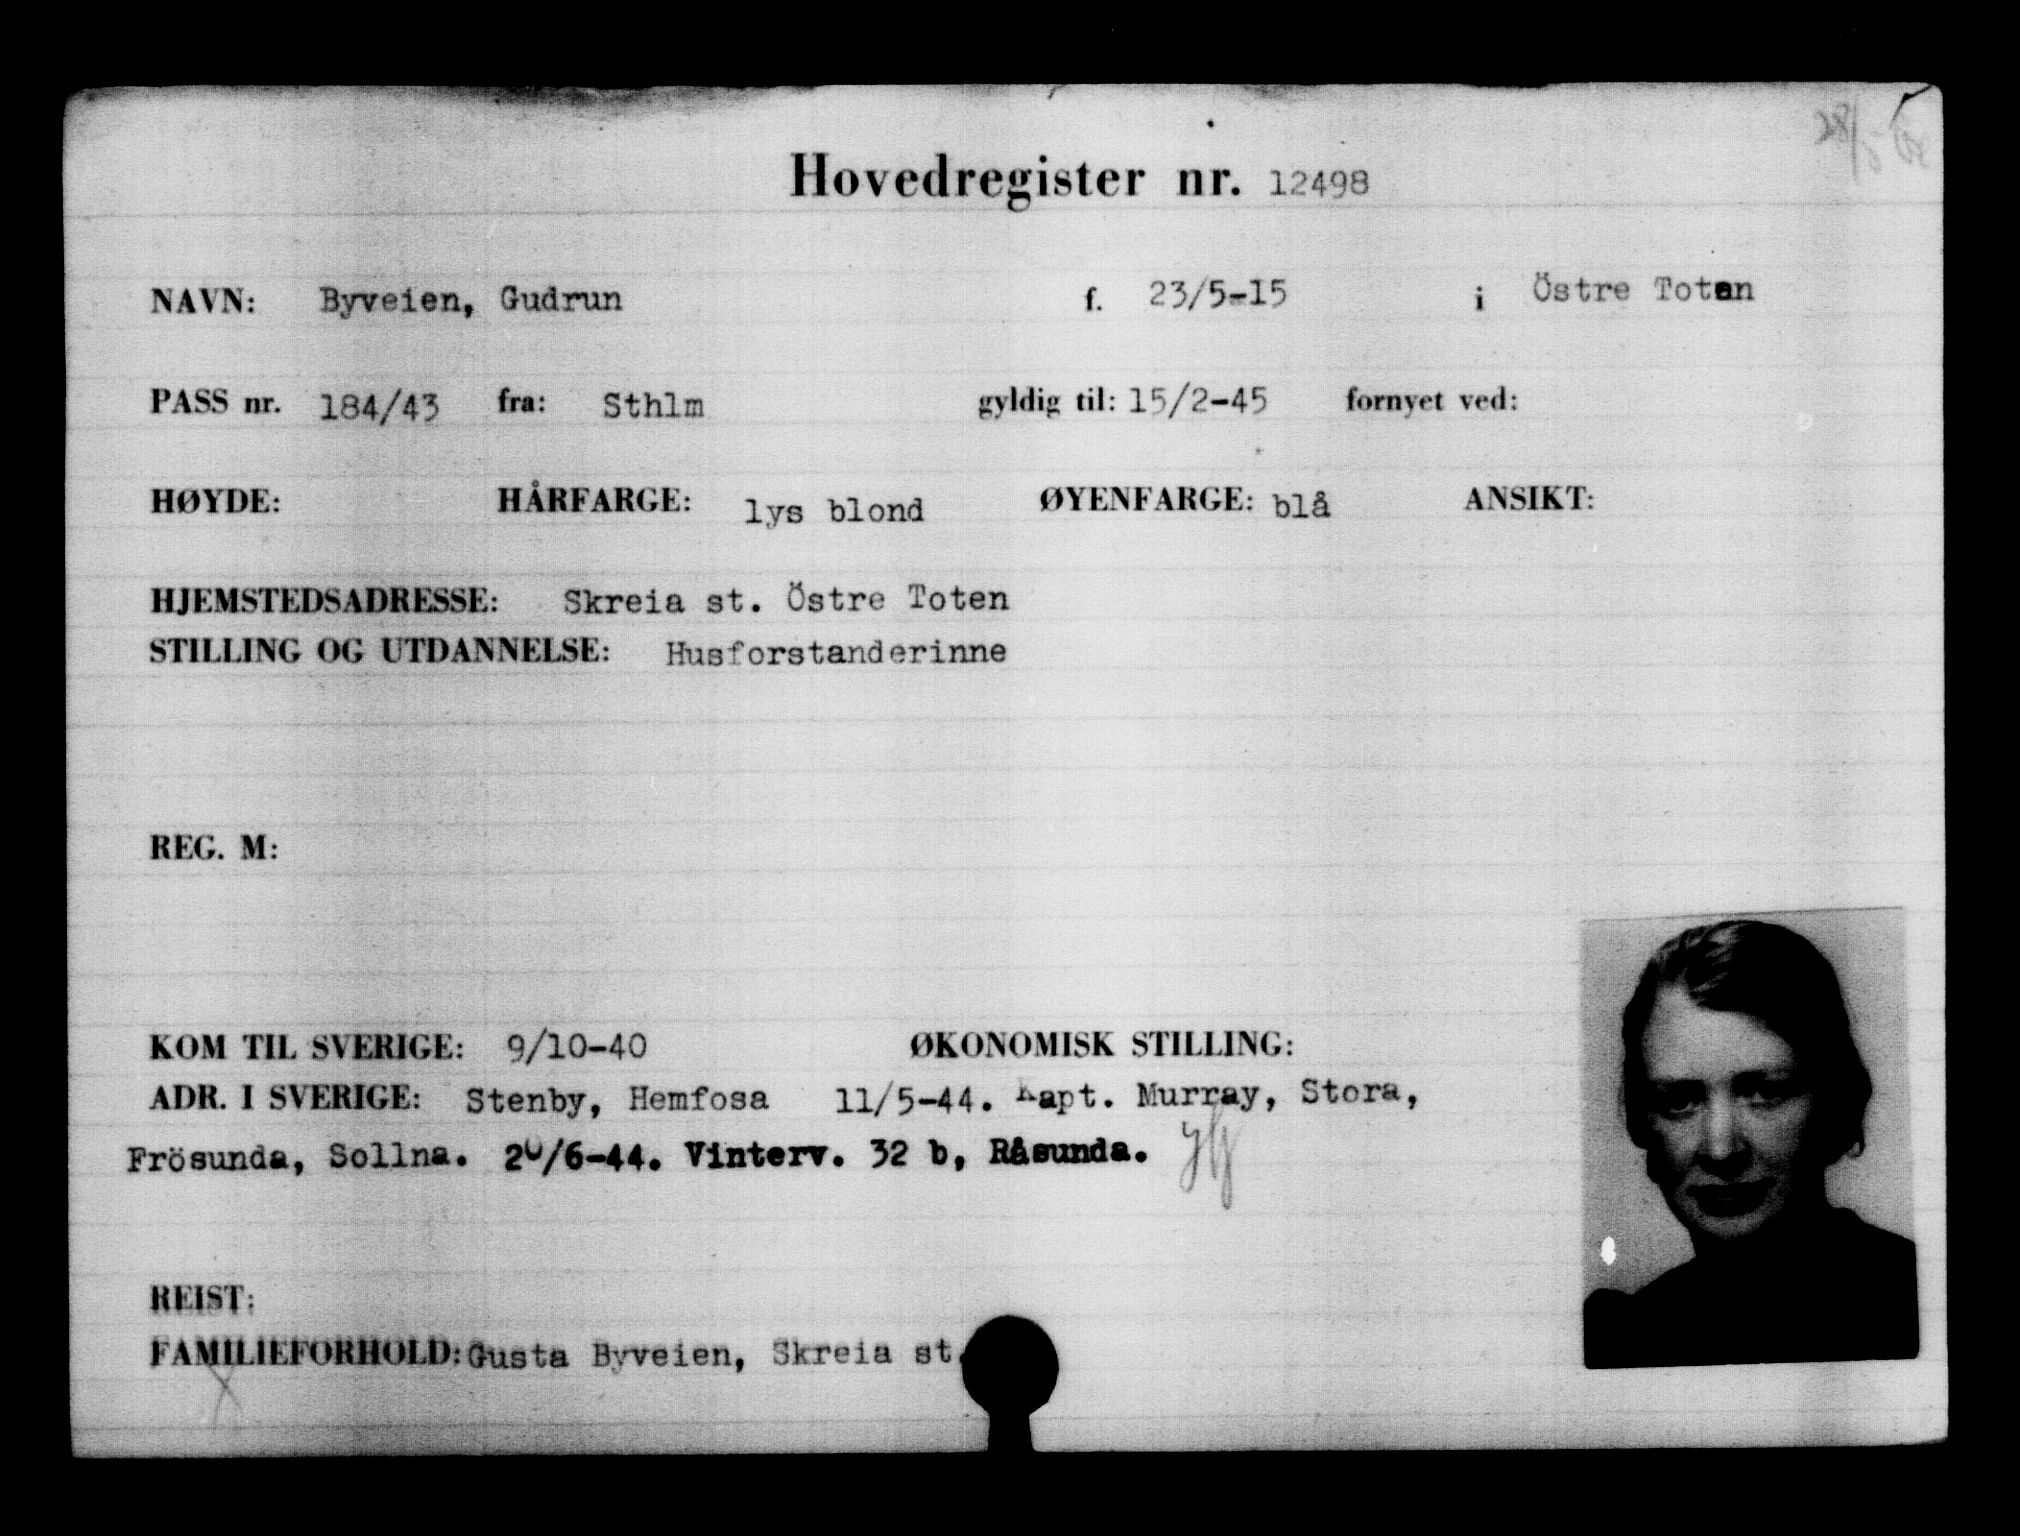 Hovedregister nr. 12498
NAVN: Byveien, Gudrun f. 23/5-15 i Östre Toten
PASS nr. 184/43 fra: Sthlm gyldig til: 15/2-45 fornyet ved:
HØYDE: HÅRFARGE: lys blond ØYENFARGE: blå ANSIKT:
HJEMSTEDSADRESSE: Skreia st. Östre Toten
STILLING OG UTDANNELSE: Husforstanderinne
REG. M:
KOM TIL SVERIGE: 9/10-40 ØKONOMISK STILLING:
ADR. I SVERIGE: Stenby, Hemfosa 11/5-44. Kapt. Murray, Stora,
Frösunda, Sollna. 20/6-44. Vinterv. 32 b, Råsunda.
REIST:
FAMILIEFORHOLD: Gusta Byveien, Skreia st.